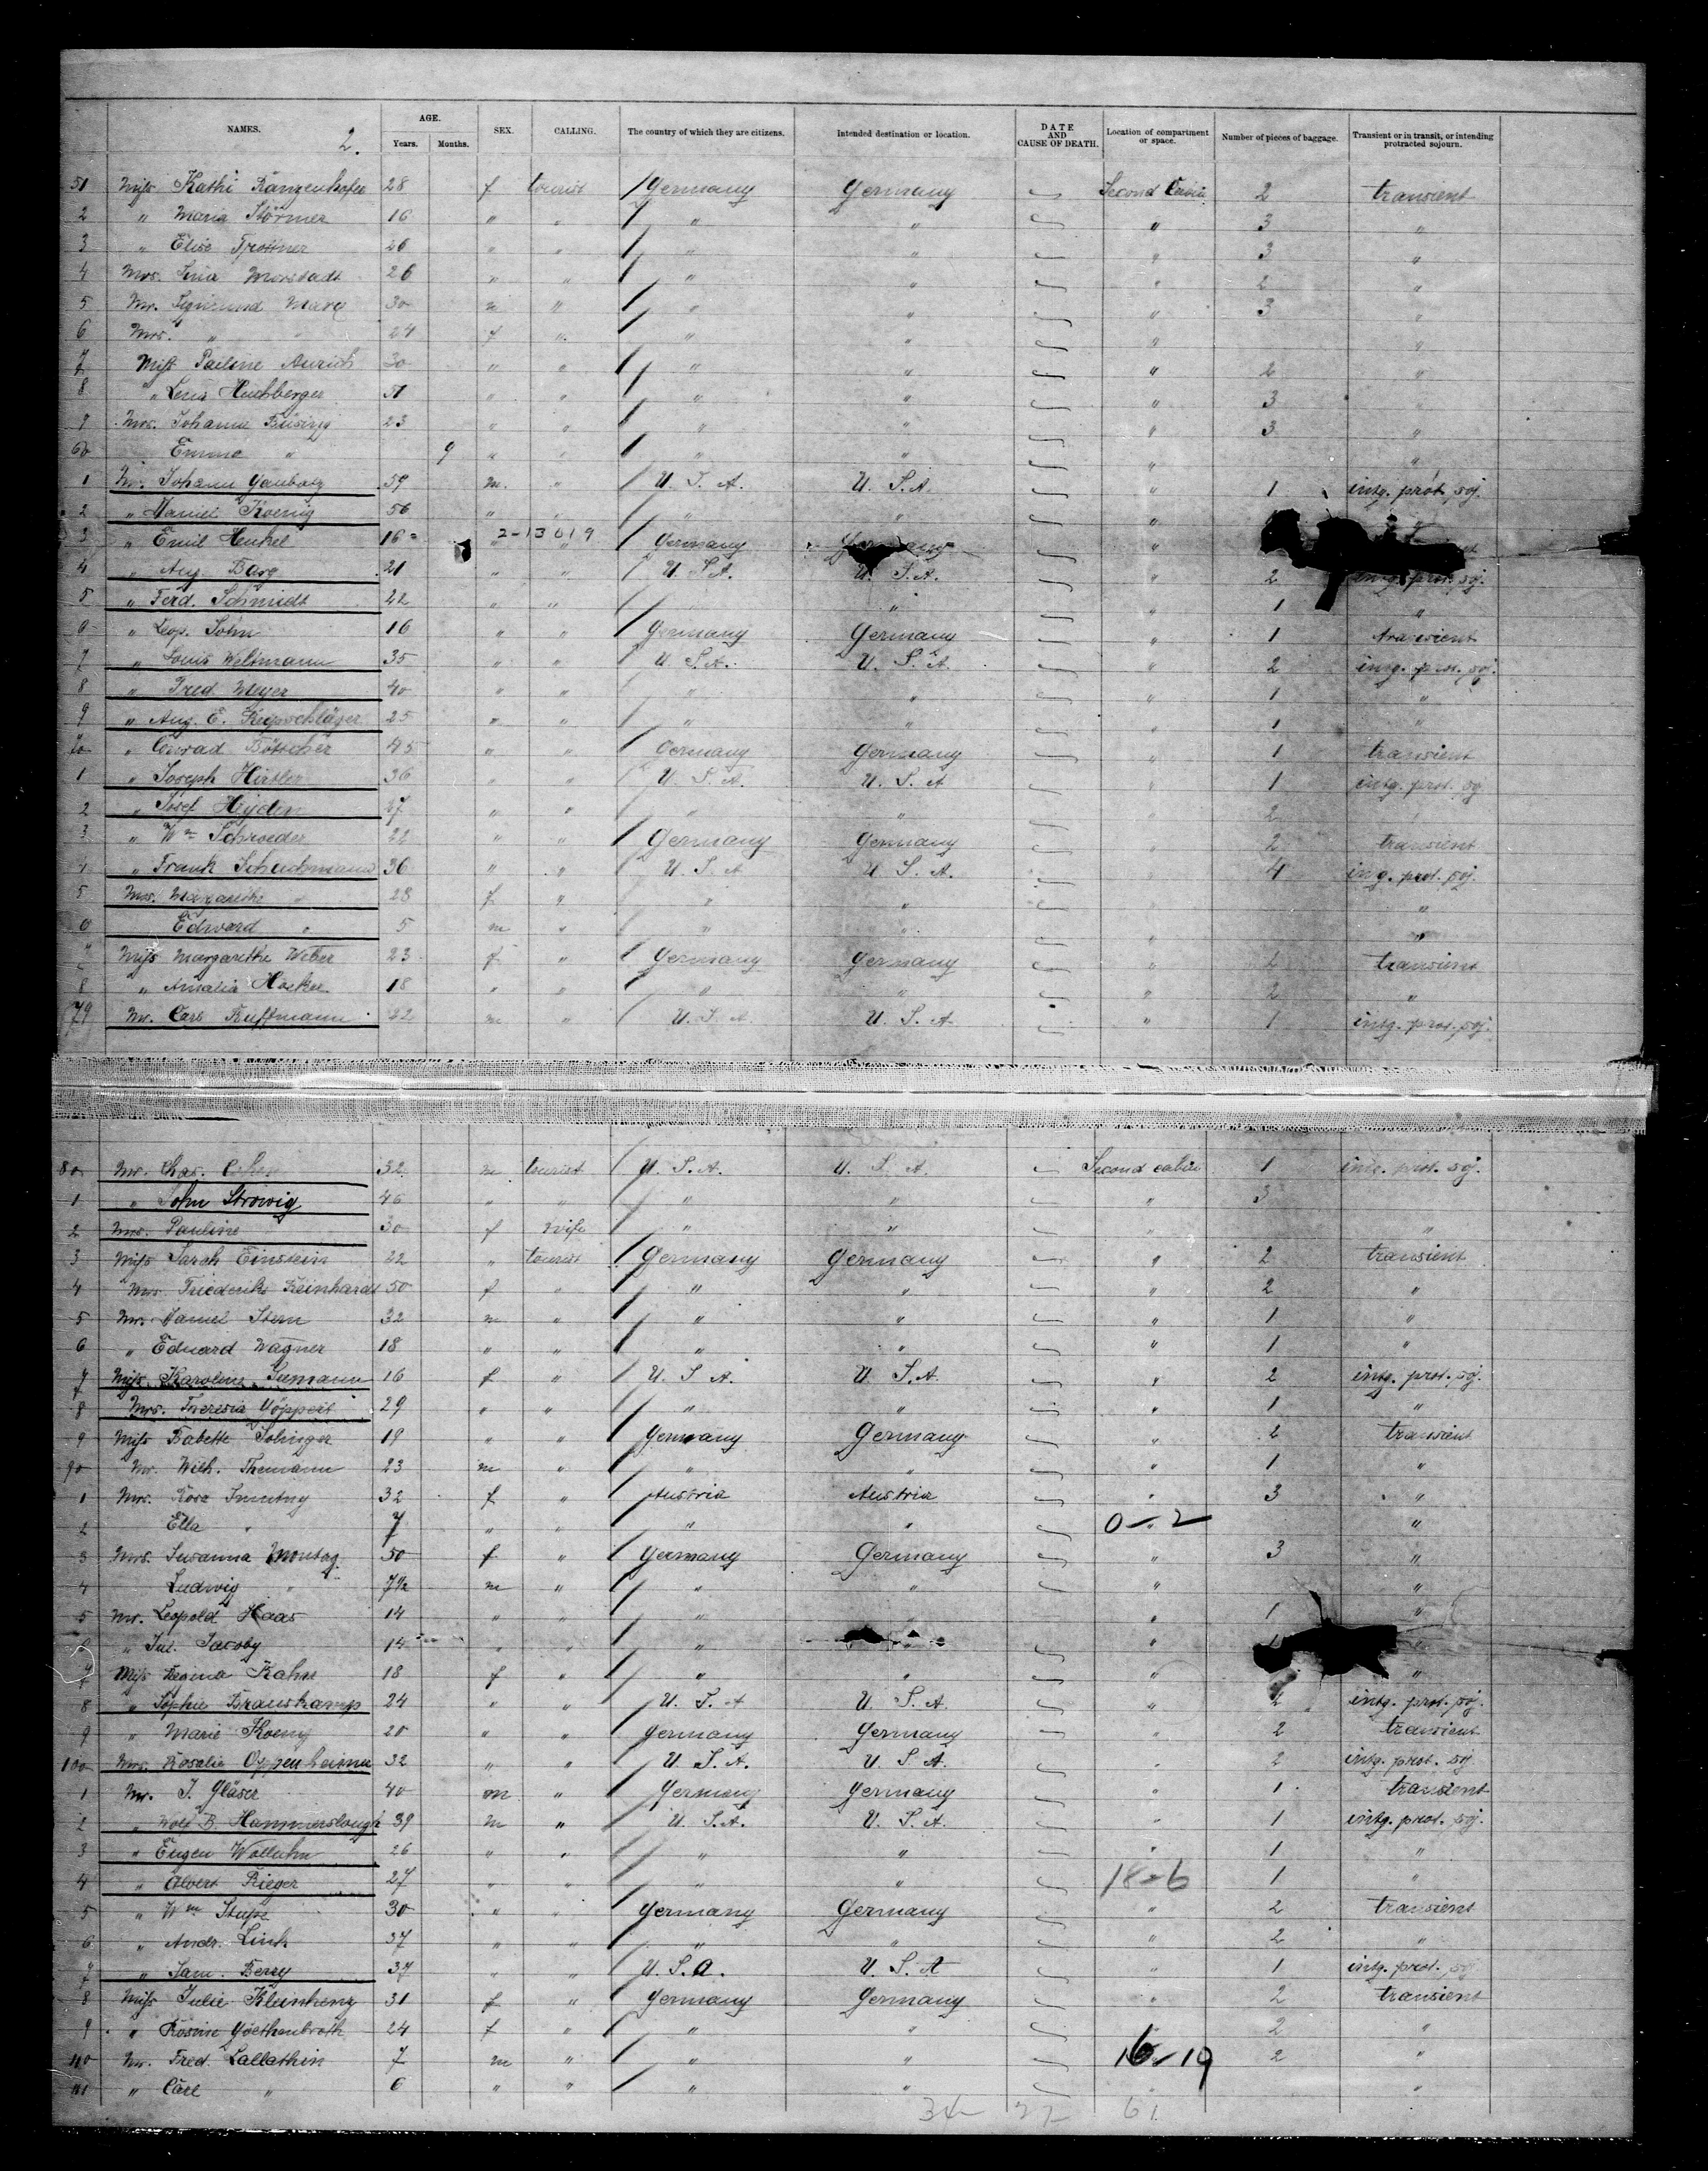 NAMES. AGE. Years. Months. SEX. CALLING. The country of which they are citizens. Intended destination or location. DATE AND CAUSE OF DEATH. Location of compartment or space. Number of pieces of baggage. Transient or in transit, or intending protracted sojourn.
2.
51 Miss Kathi 28 f tourist Germany Germany Second Cabin 2 transient
2 " Maria Störmer 16 " " " " " 3 "
3 " Elise 26 " " " " " 3 "
4 Mrs. Lina Morstadt 26 " " " " " 2 "
5 Mr. Sigmund Marx 30 m " " " " 3 "
6 Mrs. " 24 f " " " " "
7 Miss Pauline Aurich 30 " " " " " 2 "
8 " Lena 51 " " " " " 3 "
9 Mrs. Johanne Büsing 23 " " " " " 3 "
60 Emma " 9 " " " " " "
1 Mr. Johann Gaubatz 59 m. " U. S. A. U. S. A. " 1 intg. prot. soj.
2 " Daniel Koenig 56 " " " " "
3 " Emil Henkel 16 2-13019 " " Germany Germany "
4 " Aug. Barg 21 " " U. S. A. U. S. A. " 2 intg. prot. soj.
5 " Ferd. Schmidt 42 " " " " " 1 "
6 " Leop. Sohn 16 " " Germany Germany " 1 transient
7 " Louis Weltmann 35 " " U. S. A. U. S. A. " 2 intg. prot. soj.
8 " Fred Meyer 40 " " " " " 1 "
9 " Aug. E. 25 " " " " 1 "
70 " Conrad Böttcher 45 " " Germany Germany " 1 transient
1 " Joseph Hirtler 36 " " U. S. A. U. S. A " 1 intg. prot. soj
2 " Josef Heyden " " " " 2
3 " Wm Schroeder 22 " " Germany Germany " 2 transient
4 " Frank 36 " " U. S. A U. S. A. 4 intg. prot. soj.
5 Mrs. Margarethe " 28 f " " " "
6 Edward " 5 m " " " "
7 Miss Margarethe Weber 23 f " Germany Germany " 2 transient
8 " Amalia 18 " " " " " 2 "
79 Mr. Carl Ruffmann 22 m " U. S. A. U. S. A " 1 intg. prot. soj.
80 Mr. Chas. 32 m tourist U. S. A. U. S. A. Second cabin 1 intg. prot. soj.
1 " John Strowig 46 " " " " " 3
2 Mrs. Pauline 30 f wife " " " "
3 Miss Sarah Einstein 22 " tourist Germany Germany " 2 transient
4 Mrs. Friederike Reinhardt 50 f " " " " 2 "
5 Mr. Daniel Stern 32 m " " " " 1 "
6 " Eduard Wagner 18 " " " " " 1 "
7 Miss Karoline 16 f " U. S. A. U. S. A. " 2 intg. prot. soj.
8 Mrs. Theresia 29 " " " " " 1 "
9 Miss Babette Solinger 19 " " Germany Germany " 2 transient
90 Mr. Wilh. Themann 23 m " " " " 1 "
1 Mrs. Rosa 32 f " Austria Austria " 3 "
2 Ella " 7 " " " " 0-2 "
3 Mrs. Susanna Montag 50 f " Germany Germany " 3 "
4 Ludwig " 7½ m " " " " "
5 Mr. Leopold Haas 14 " " " " 1 "
6 " Jul. Jacoby 14 " " " " "
7 Miss Regina Kahn 18 f " " " " "
8 " Sophie 24 " " U. S. A U. S. A " intg. prot. soj.
9 " Marie Koenig 20 " " Germany Germany " 2 transient
100 Mrs. Rosalie Oppenheimer 32 " " U. S. A. U. S. A. " 2 intg. prot. soj.
1 Mr. J. Gläser 40 m " Germany Germany " 1 transient
2 " Wolf B. Hammerslough 39 m " U. S. A. U. S. A. " 1 intg. prot. soj.
3 " Eugen Wollahn 26 " " " " " 1 "
4 " Albert Rieger 27 " " " " 18-6 1 "
5 " Wm 30 " " Germany Germany " 2 transient
6 " Andr. Link 37 " " " " " 2 "
7 " Sam. Berry 37 " " U. S. A. U. S. A " 1 intg. prot. soj
8 Miss Julie Kleinhenz 31 f " Germany Germany " 2 transient
9 " Rosine 24 f " " " 2 "
110 Mr. Fred. Lallathin 7 m " " " 16-19 2 "
111 " Carl " 6 " " " " " "
34 27 61